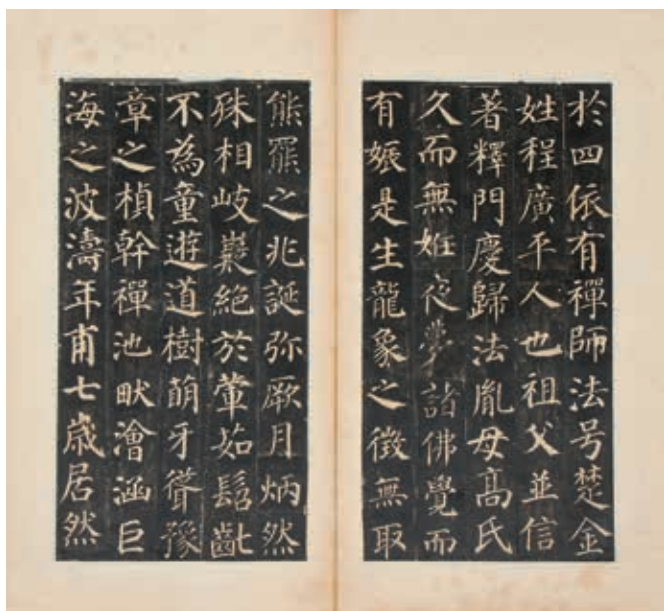 於四依有禪師法号楚金
姓程廣平人也祖父並信
著釋門慶歸法胤母高氏
久而無姙夜夢諸佛覺而
有娠是生龍象之徵無取
熊羆之兆誕弥厥月炳然
殊相岐嶷絕於葷茹髫齔
不為童遊道樹萌牙聳豫
章之楨幹禪池畎澮涵巨
海之波濤年甫七歲居然